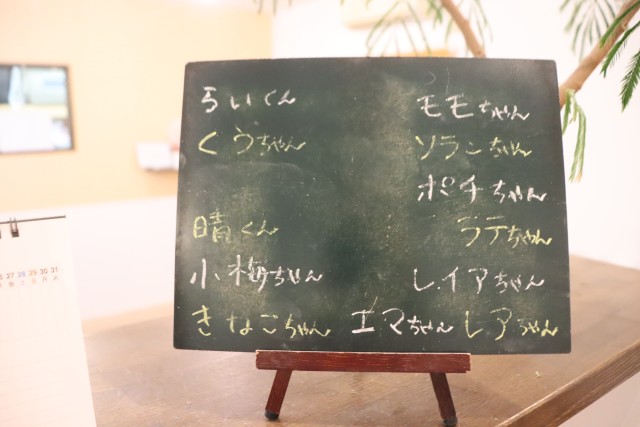 らいくん
くうちゃん
晴くん
小梅ちゃん
きなこちゃん
モモちゃん
ソランちゃん
ポチちゃん
ラテちゃん
レイアちゃん
エマちゃん レアちゃん
27 28 29 30 31